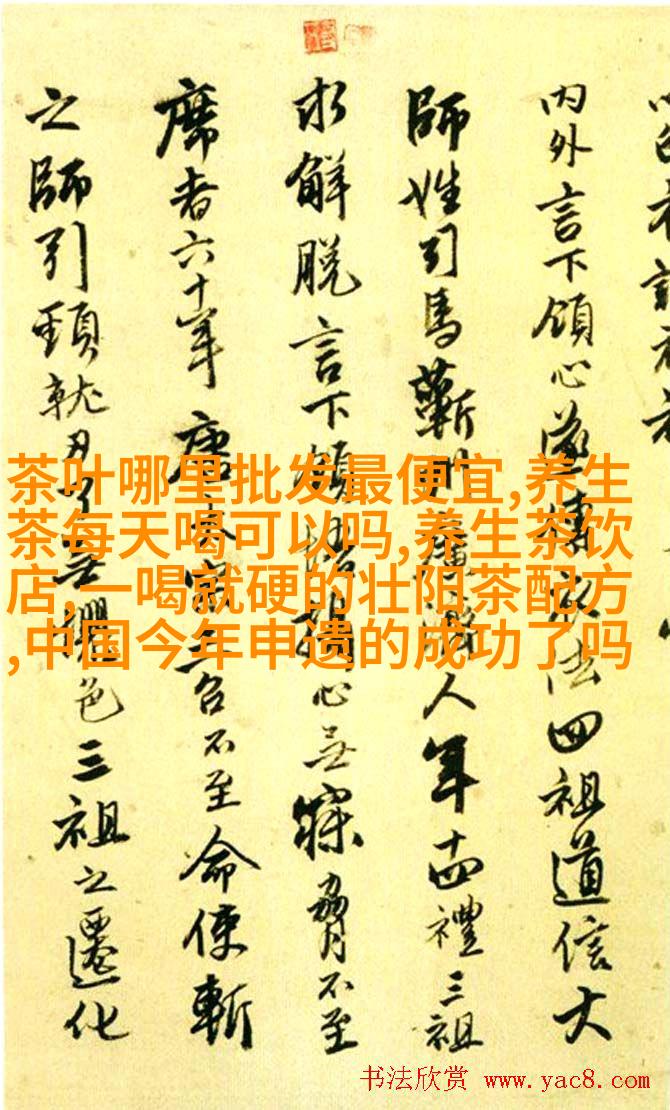 內外言下領心遂傳衣法四祖道信大
師姓司馬蘄州廣濟人年十四禮三祖
求解脫言下頓悟心無寐脅不至
席者六十年唐太宗三召不至命使斬
之師引頸就刃了無懼色三祖之遷化
茶叶哪里批发最便宜,养生
茶每天喝可以吗,养生茶饮
店,一喝就硬的壮阳茶配方
,中国今年申遗的成功了吗
书法欣赏 www.yac8.com